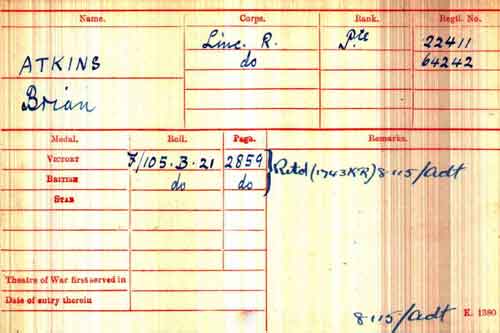 Name. Corps. Rank. Regtl. No.
ATKINS Linc. R. Pte 22411
Brian do 64242
Medal. Roll. Page. Remarks.
VICTORY F/105.B.21 2859 Retd (1743KR) 8115/adt
BRITISH do do
STAR
Theatre of War first served in
Date of entry therein
8115/adt K. 1380